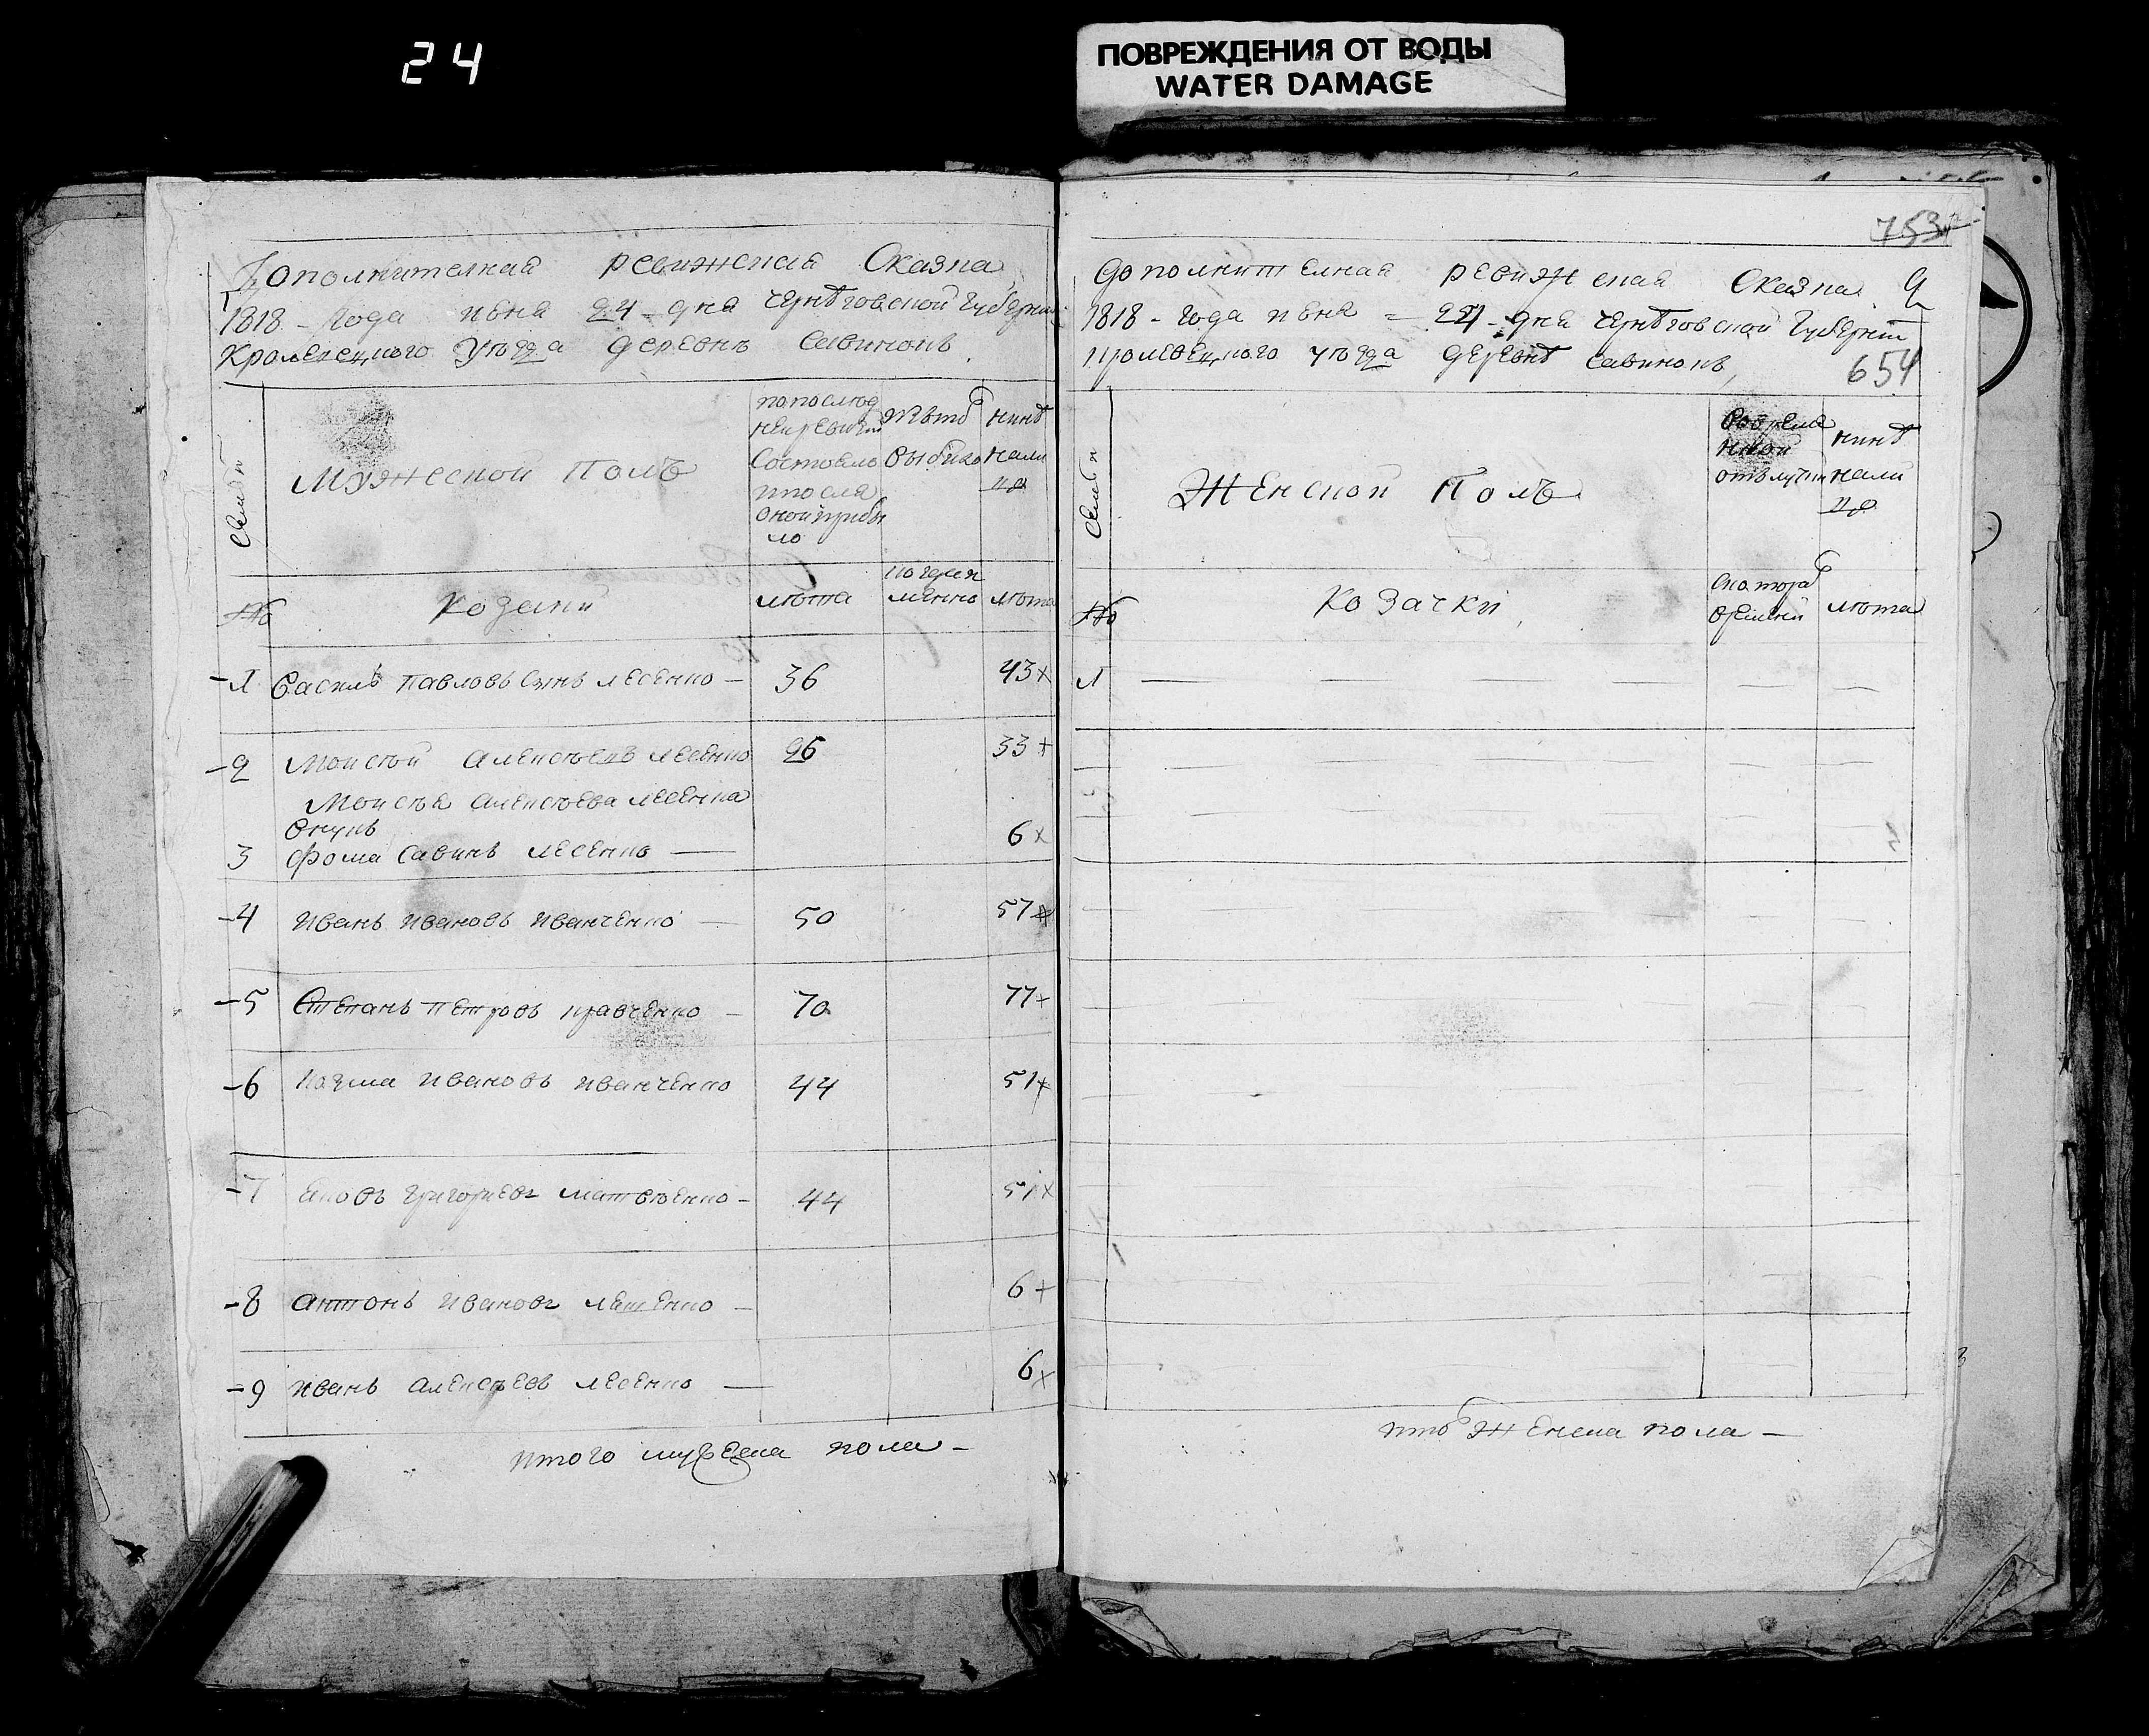 24
ПОВРЕЖДЕНИЯ ОТ ВОДЫ
WATER DAMAGE
Дополнителная ревижская Сказка
1818 - Года июня 24 - дня черниговской Губернии
Кролевецкого уѣзда деревнѣ Савинокъ
Семьи
Мужеской Полъ
по послед
ней ревизии
Состояло
и после
оной прибы
ло
Изъ того
выбыло
Нинѣ
нали
цо
№
Козаки
лѣта
лѣта
1 Василь Павловъ Сынъ лесенко - 36 43
2 Моисей алексѣевъ лесенко 26 33
Моисѣя алексѣева лесенка
внукъ
3 фома Савинъ лесенко 6
4 иванъ ивановъ иванченко 50 57
5 Степанъ петровъ кравченко 70 77
6 козма ивановъ иванченко 44 51
7 яковъ григориевъ матвѣенко 44 51
8 антонъ ивановъ 6
9 иванъ алексѣевъ лесенко 6
итого мужеска пола -
753
дополнителная ревижская Сказка
1818 - года июня - 24 - дня черниговской Губернии
кролевецкого уѣзда деревнѣ Савинокъ
654
Семьи
Женской Полъ
Во време
нной
отлучки
нинѣ
нали
цо
№
Козачки
Съ котораго
времени
лѣта
1
итого Женска пола -